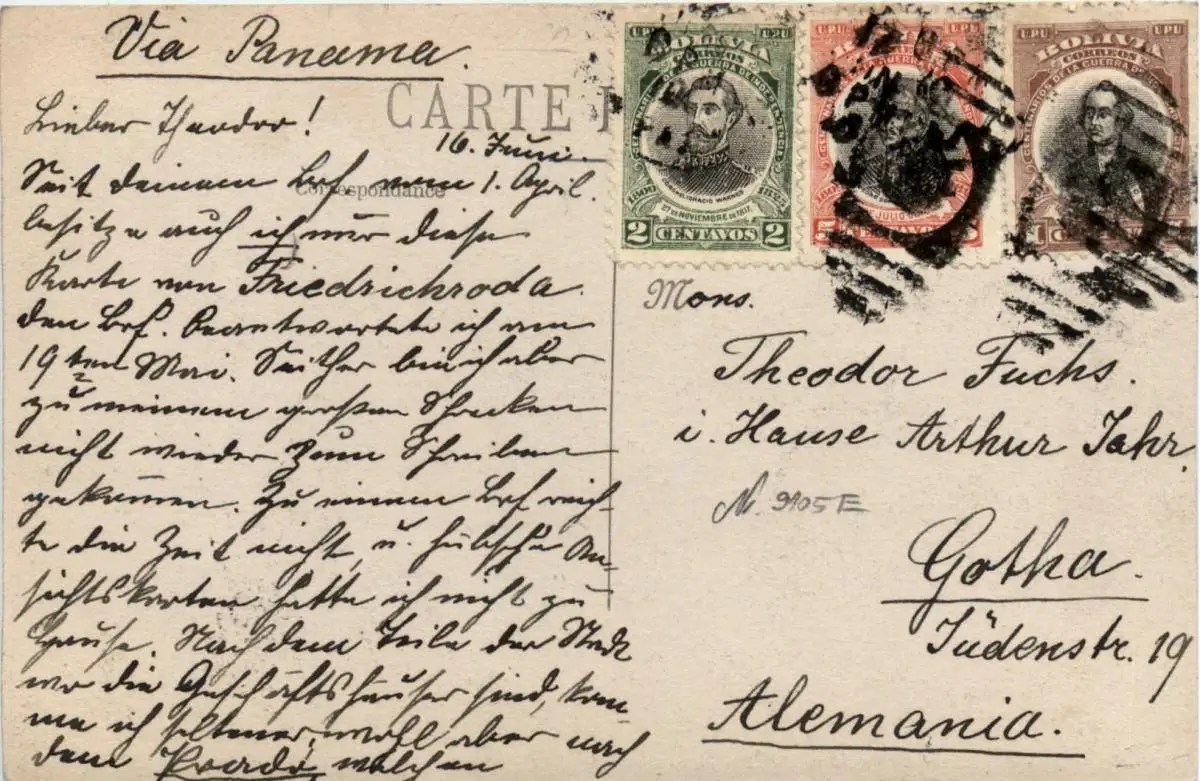 Via Panama.
CARTE P
Correspondance
Lieber Theodor!
16. Juni.
Seit deinem Brf vom 1. April.
besitze auch ich nur diese
Karte von Friedrichroda.
den Brf. beantwortete ich am
19ten Mai. Seither bin ich aber
zu meinem großen Schrecken
nicht wieder zum Schreiben
gekommen. Zu einem Brf reich-
te die Zeit nicht, u. hübsche An-
sichtskarten hatte ich nicht zu
Hause. Nach dem Teile der Stadt
wo die Geschäftshäuser sind, kom-
me ich seltener, wohl aber nach
dem Prado, welchen
UPU UPU
BOLIVIA
CORREOS
CENTENARIO DE LA GUERRA DE INDEPENDENCIA
1809 1825
IGNACIO WARNES
27 DE NOVIEMBRE DE 1816
2 CENTAVOS 2
UPU
1809
JULIO
5 CENTAVOS 5
UPU UPU
BOLIVIA
CORREOS
DE LA GUERRA DE
1
Mons.
Theodor Fuchs.
i. Hause Arthur Jahr.
N. 9105E
Gotha.
Jüdenstr. 19
Alemania.